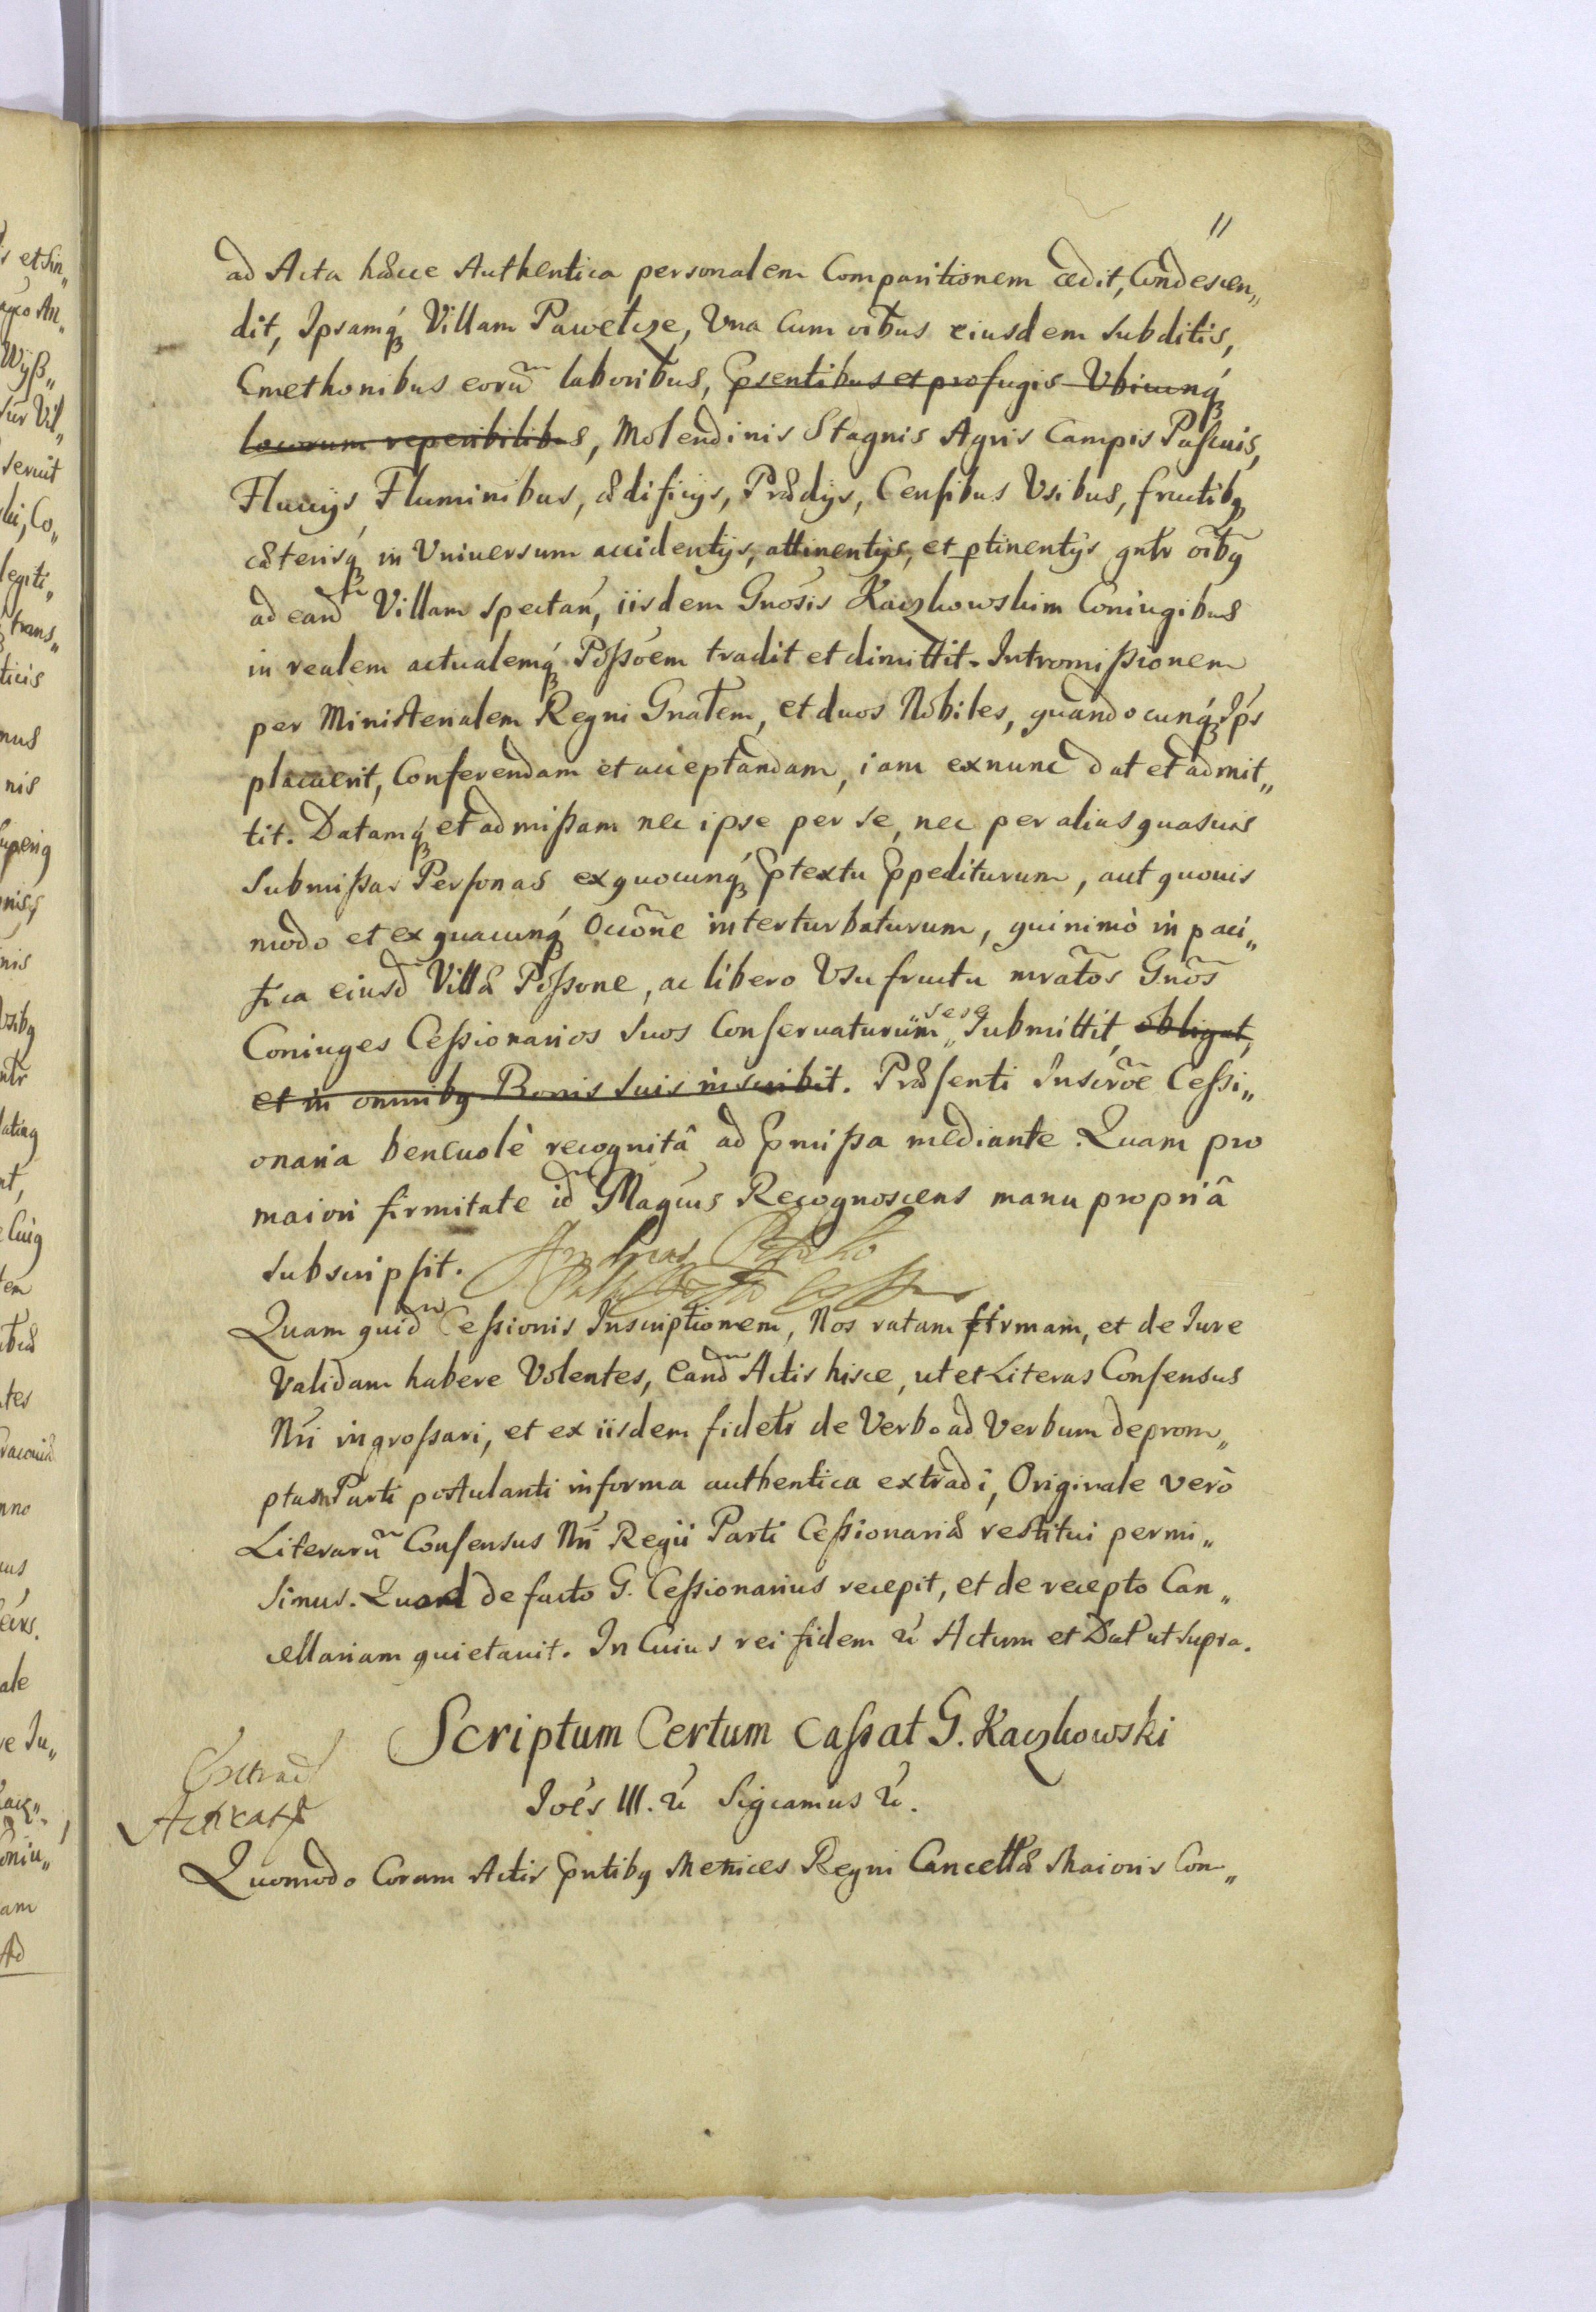 11
ad Acta hæcce Authentica personalem Comparitionem cedit, Condescen„
dit, Ipsamq́ꝫ Villam Pawełcze, Vna Cum oibus eiusdem subditis,
Cmethonibus eorũ laboribus, p̃sentibus et profugis Vbicunq́ꝫ
locorum reperibilibus, Molendinis Stagnis Agris Campis Pascuis,
Fluvijs Fluminibus, ædificijs, Prædijs, Censibus Vsibus, fructibꝫ
cæterisq́ꝫ in Vniuersum accidentijs, attinentijs, et ptinentijs gnłr oĩbꝫ
ad eand̃ Villam spectań, iisdem Gnosis Kaczkowskim Coniugibus
in realem actualemq́ꝫ Possoem tradit et dimittit. Intromissionem
per Ministerialem Regni Gnałem, et duos Nobiles, quandocunq́ꝫ Ips
placuerit, Conferendam et acceptandam, iam exnunc dat et admit„
tit. Datamq́ꝫ et admissam nec ipse per se, nec per alias quasuis
submissas Personas exquocunq́ꝫ p̃textu p̃pediturum, aut quouis
modo et ex quacunq́ꝫ Occõne interturbaturum, quinimò in paci„
fica eiusd̃ Villæ Possone, ac libero Vsufructu mratõs Gnõs
Coniuges Cessionarios suos Conseruaturum „sese submittit, obligat,
et in omnibꝫ Bonis suis inscribit. Præsenti Inscrõe Cessi„
onaria beneuolè recognitâ ad p̃missa mediante. Quam pro
maiori firmitate id̃ Magcus Recognoscens manu propriâ
subscripsit. Andreas Potocki
Quam quid̃ Cessionis Inscriptionem, Nos ratam firmam, et de Iure
Validam habere Volentes, Eand̃ Actis hisce, ut et Literas Consensus
Nri ingrossari, et ex iisdem fidełr de Verbo ad Verbum deprom„
ptam Parti postulanti in forma authentica extradi, Originale verò
Literarũ Consensus Nri Regii Parti Cessionariæ restitui permi„
simus. Quod de facto G. Cessionarius recepit, et de recepto Can„
cellariam quietauit. In Cuius rei fidem &c Actum et Dat ut supra.
Scriptum Certum Cassat G. Kaczkowski
Extrad
Ioes III. &c Sigcamus &c.
Quomodo Coram Actis p̃ntibꝫ Metrices Regni Cancellæ Maioris Con„